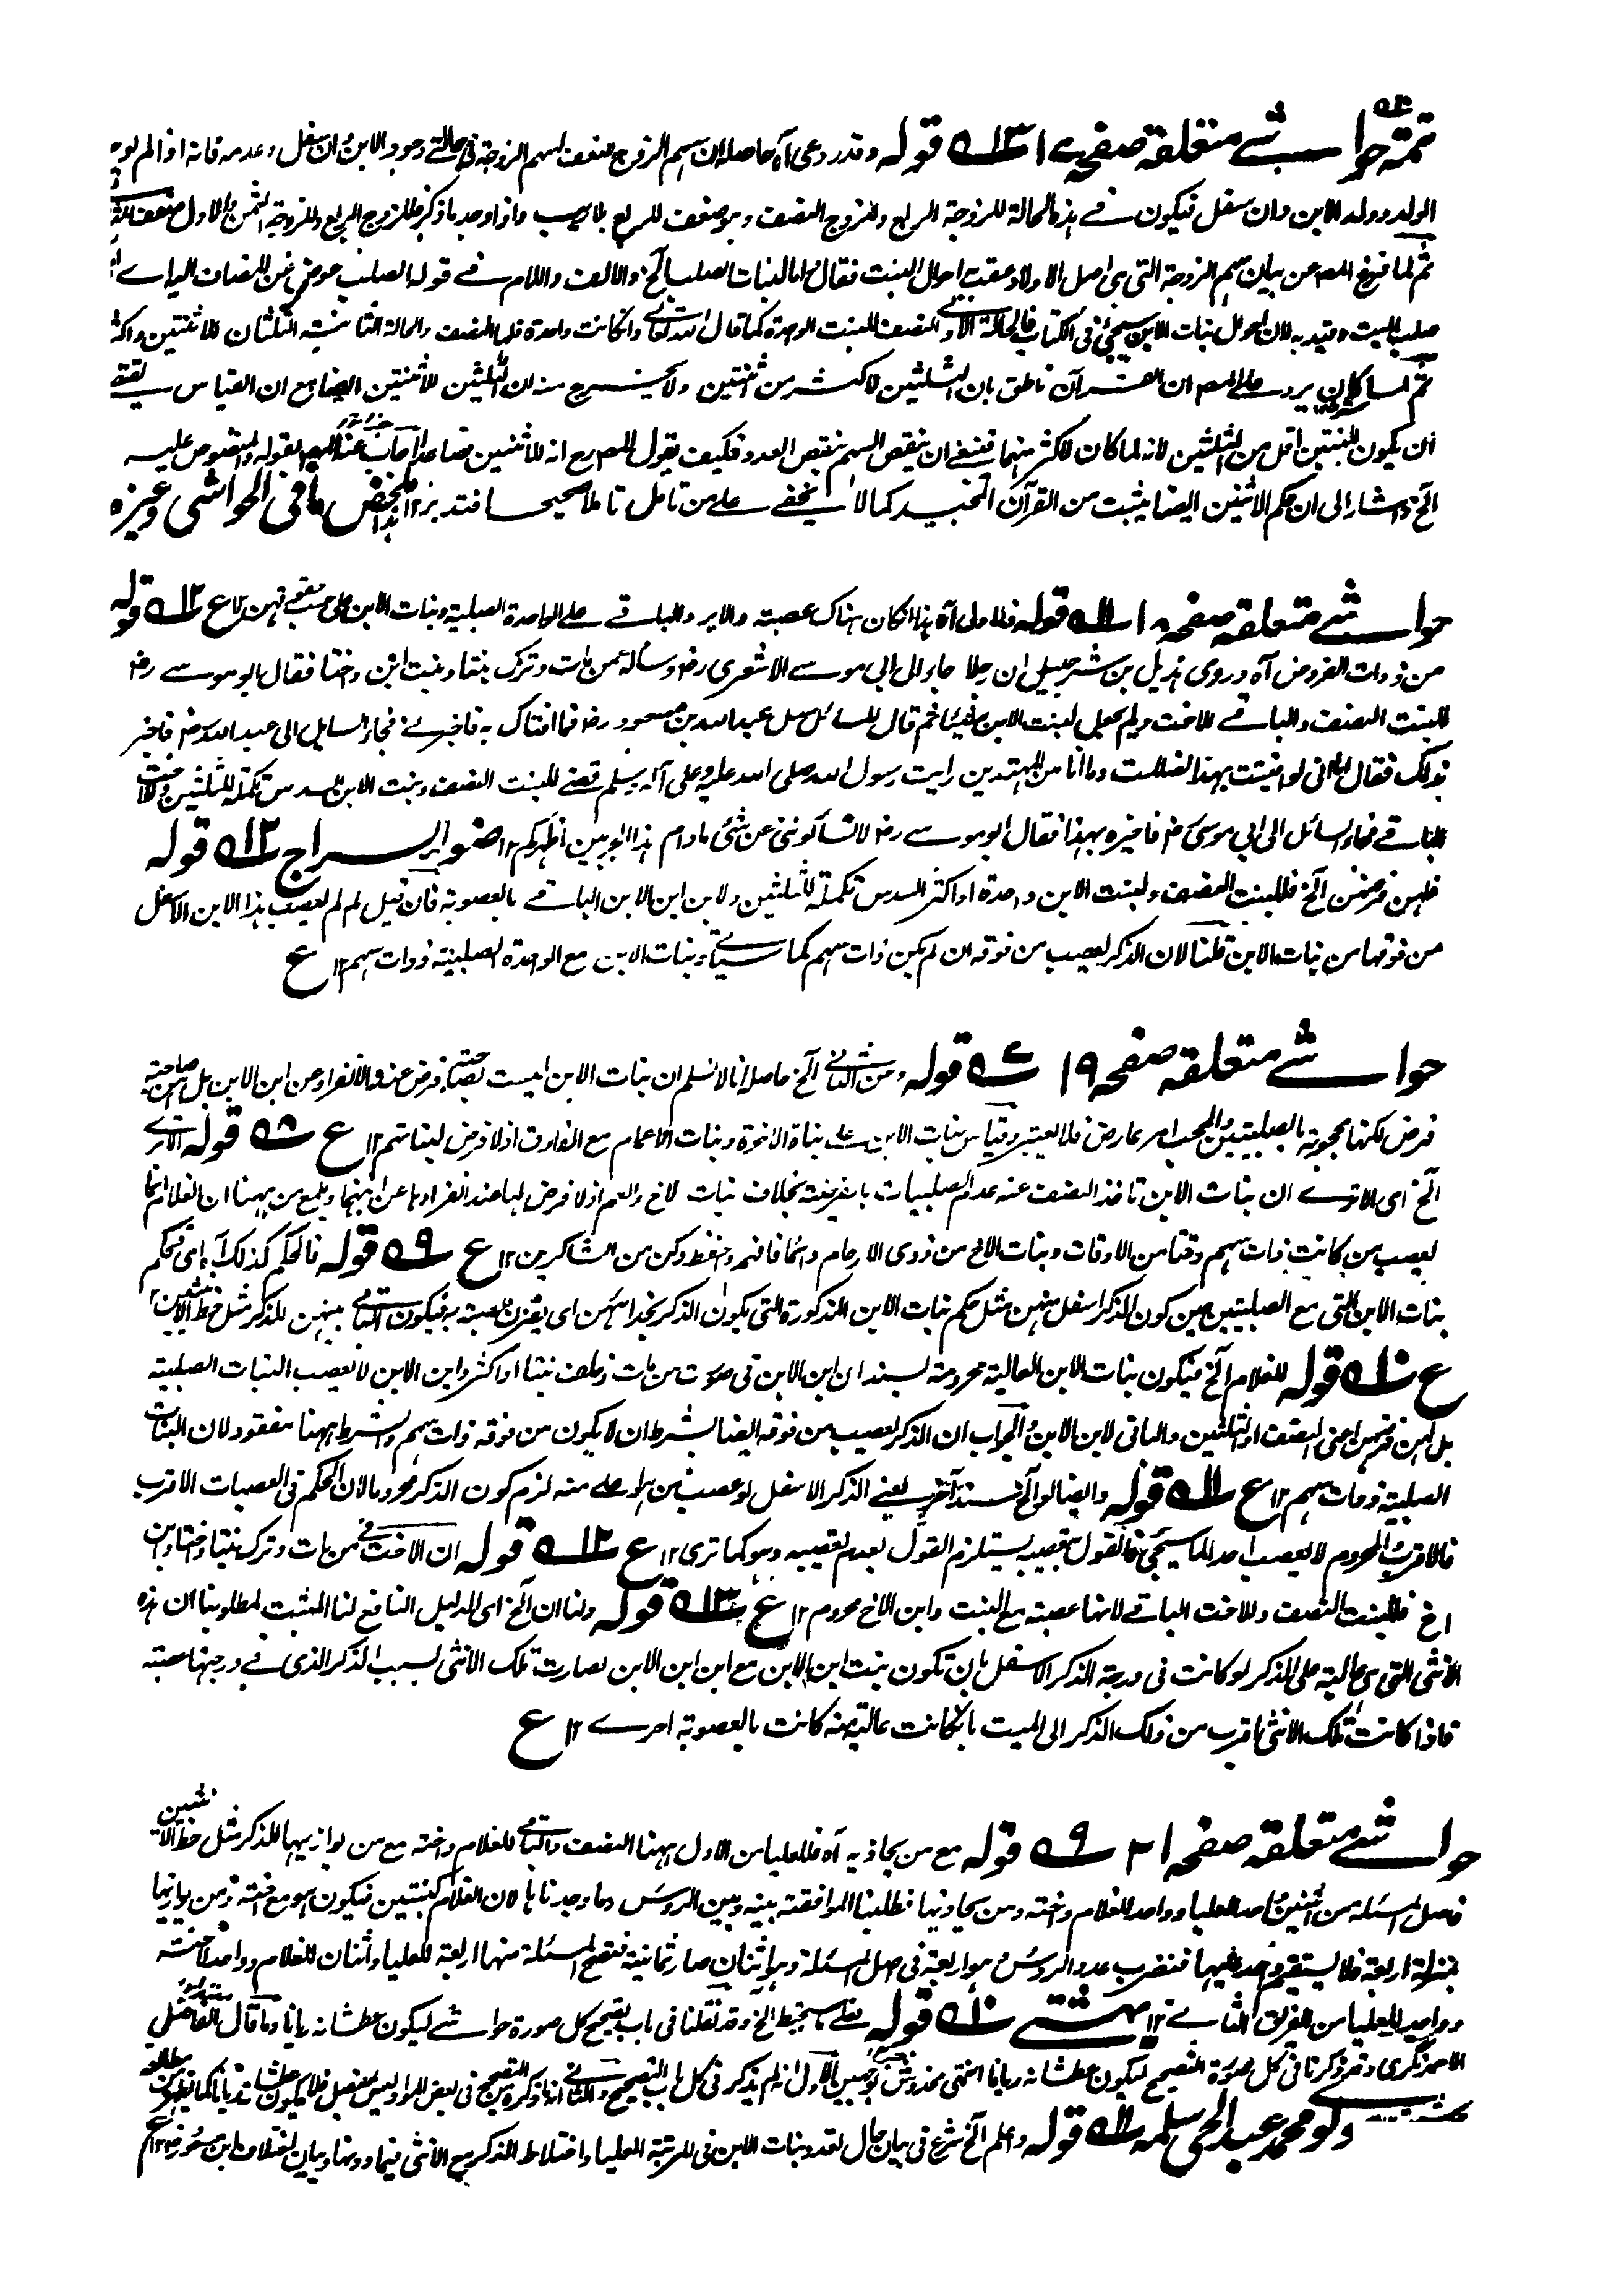 تتمة حواشي متعلقة صفحه ١٧ ١٣ قوله وقدر دعى آه حاصله ان سهم الزوج ضعف لسهم الزوجة في حالتي وجود الابن وان سفل وعدمه فانه اذا لم يوجد
الولد وولد الابن وان سفل فيكون في هذه الحالة للزوجة الربع وللزوج النصف وهو ضعف للربع بلا ريب واذا وجد ما ذكر فللزوج الربع وللزوجة الثمن والاول ضعف الثاني
ثم لما فرغ المص عن بيان سهم الزوجة التي هي اصل الاولاد عقبه احوال البنت فقال اما لبنات الصلب الخ والالف واللام في قوله الصلب عوض عن المضاف اليه اے
صلب الميت وقيد به لان احوال بنات الابن سيجئ في الكتاب فالحالة الاولى النصف للبنت الواحدة كما قال الله تعالى وان كانت واحدة فلها النصف والحالة الثانية الثلثان للاثنتين واكثر
ثم لما كان يرد على المص ان القرآن ناطق بان الثلثين لاكثر من ثنتين ولا يخرج منه ان الثلثين للاثنتين ايضا مع ان القياس يقتضي
ان يكون للبنتين اقل من الثلثين لانه لما كان للاكثر منهما فينبغي ان ينقص السهم بنقص العدد فكيف يقول المص رح انه للاثنين فصاعدا اجاب عنه المص بقوله والمنصوص عليه
الخ واشار الى ان حكم الاثنين ايضا يثبت من القرآن المجيد كما لا يخفى على من تامل تاملا صحيحا فتدبر ١٢ هذا ملخص ما في الحواشي وغيره
حواشي متعلقه صفحه ١٨ ١١ قوله فللاولى آه هذا ان كان هناك عصبة والا يرد الباقي على الواحدة الصلبية وبنات الابن على حسب حقوقهن ١٢ ع ١٢ قوله
من ذوات الفروض آه وروى هذيل بن شرحبيل ان رجلا جاء الى ابي موسى الاشعري رض وسأله عمن مات وترك بنتا وبنت ابن واختا فقال ابو موسى رض
للبنت النصف والباقي للاخت ولم يجعل لبنت الابن شيئا ثم قال للسائل سل عبد الله بن مسعود رض فما افتاك به فاخبرني فجاء السايل الى عبد الله رض فاخبر
بذلك فقال اني لو افتيت بهذا لضللت وما انا من المهتدين رايت رسول الله صلى الله عليه وعلى آله وسلم قضى للبنت النصف وبنت الابن السدس تكملة للثلثين وللاخت
الباقي فجاء السائل الى ابي موسى رض فاخبره بهذا فقال ابو موسى رض لا تسألونني عن شئ ما دام هذا الحبر بين اظهركم ١٢ ضوء السراج ١٣ قوله
فلهن فرضهن الخ فللبنت النصف ولبنت الابن واحدة او اكثر السدس تكملة للثلثين ولابن ابن الابن الباقي بالعصوبة فان قيل لم لم يعصب هذا الابن الاسفل
من فوقها من بنات الابن قلنا لان الذكر يعصب من فوقه ان لم يكن ذات سهم كما سيأتي وبنات الابن مع الواحدة الصلبية ذوات سهم ١٢ ع
حواشي متعلقه صفحه ١٩ ٧ قوله ومن الثاني الخ حاصله انا لا نسلم ان بنات الابن ليست بصاحبة فرض عند الانفراد عن ابن الابن بل هن صاحبة
فرض لكنها محجوبة بالصلبيتين والحجب امر عارض فلا يعتبر وقياس بنات الابن على بناة الاخوة وبنات الاعمام مع الفارق اذ لا فرض لبناتهم ١٢ ع ٨ قوله الا ترى
الخ اى الا ترى ان بنات الابن تاخذ النصف عند عدم الصلبيات بالفرضية بخلاف بنات الاخ والعم اذ لا فرض لها عند انفرادها عن ابنهما ويلمع من ههنا ان الغلام انما
يعصب من كانت ذات سهم وقتا من الاوقات وبنات الاخ من ذوى الارحام دائما فافهم واحفظ وكن من الشاكرين ١٢ ع ٩ قوله فالحكم كذلك آه اى فحكم
بنات الابن التي مع الصلبيتين حين كون الذكر اسفل منهن مثل حكم بنات الابن المذكورة التي يكون الذكر بحذائهن اى يصرن عصبة به فيكون الباقي بينهن للذكر مثل حظ الانثيين ١٢
ع ١٠ قوله للغلام الخ فيكون بنات الابن العالية محرومة لسند ان ابن الابن في صورت من مات وخلف بنتا او اكثر وابن الابن لا يعصب البنات الصلبية
بل لهن فرضهن اعنى النصف او الثلثين والباقي لابن الابن والجواب ان الذكر يعصب من فوقه ايضا بشرط ان لا يكون من فوقه ذات سهم والشرط ههنا مفقود لان البنات
الصلبية ذوات سهم ١٢ ع ١١ قوله وايضا لو الخ سند آخر يعنى الذكر الاسفل لو عصب من هى اعلى منه لزم كون الذكر محروما لان الحكم في العصبات الاقرب
فالاقرب والمحروم لا يعصب احدا لما سيجئ فالقول بتعصيبه يستلزم القول بعدم تعصيبه وهو كما ترى ١٢ ع ١٢ قوله ان الاخت في من مات وترك بنتا واختا وابن
اخ فللبنت النصف وللاخت الباقي لانها عصبة مع البنت وابن الاخ محروم ١٢ ع ١٣ قوله ولنا ان الخ اى الدليل النافع لنا المثبت لمطلوبنا ان هذه
الانثى التي هى عالية على الذكر لو كانت في درجة الذكر الاسفل بان تكون بنت ابن الابن مع ابن ابن الابن لصارت تلك الانثى بسبب الذكر الذى في درجتها عصبة
فاذا كانت تلك الانثى اقرب من ذلك الذكر الى الميت بان كانت عالية منه كانت بالعصوبة احرى ١٢ ع
حواشي متعلقه صفحه ٢١ ٩ قوله مع من يحاذيه آه فللعليا من الاول ههنا النصف والباقي للغلام واخته مع من يوازيهما للذكر مثل حظ الانثيين
فاصل المسئلة من اثنين واحد للعليا وواحد للغلام واخته ومن يحاذيها فطلبنا الموافقة بينه وبين الروس وما وجدناها لان الغلام كبنتين فيكون هو مع اخته ومن يوازيها
بمنزلة اربعة فلا يستقيم واحد عليها فنضرب عدد الروس وهو اربعة في اصل المسئلة وهو اثنان صار ثمانية فتصح المسئلة منها اربعة للعليا واثنان للغلام وواحد لاخته
وواحد للعليا من الفريق الثاني ١٢ بهشتي ١٠ قوله الخ وقد نقلنا في باب تصحيح كل صورة حواشي ليكون عطشانه ريانا وما قال الفاضل
الاحمد نگرى وقد ذكرنا في كل صورة التصحيح ليكون عطشانه ريانا انتهى مخدوش بوجهين الاول انه لم يذكر في كل باب التصحيح والثاني انه ذكره التصحيح في بعض المواد وليس بمفصل فلا يكون عطشانه ريانا كما
ولو محمد عبد الحي سلمه ١١ قوله واعلم الخ شرع في بيان حال تعدد بنات الابن في المرتبة العليا واختلاط الذكر مع الانثى فيما دونها وبيان اختلاف ابن مسعود رض ١٢ ع